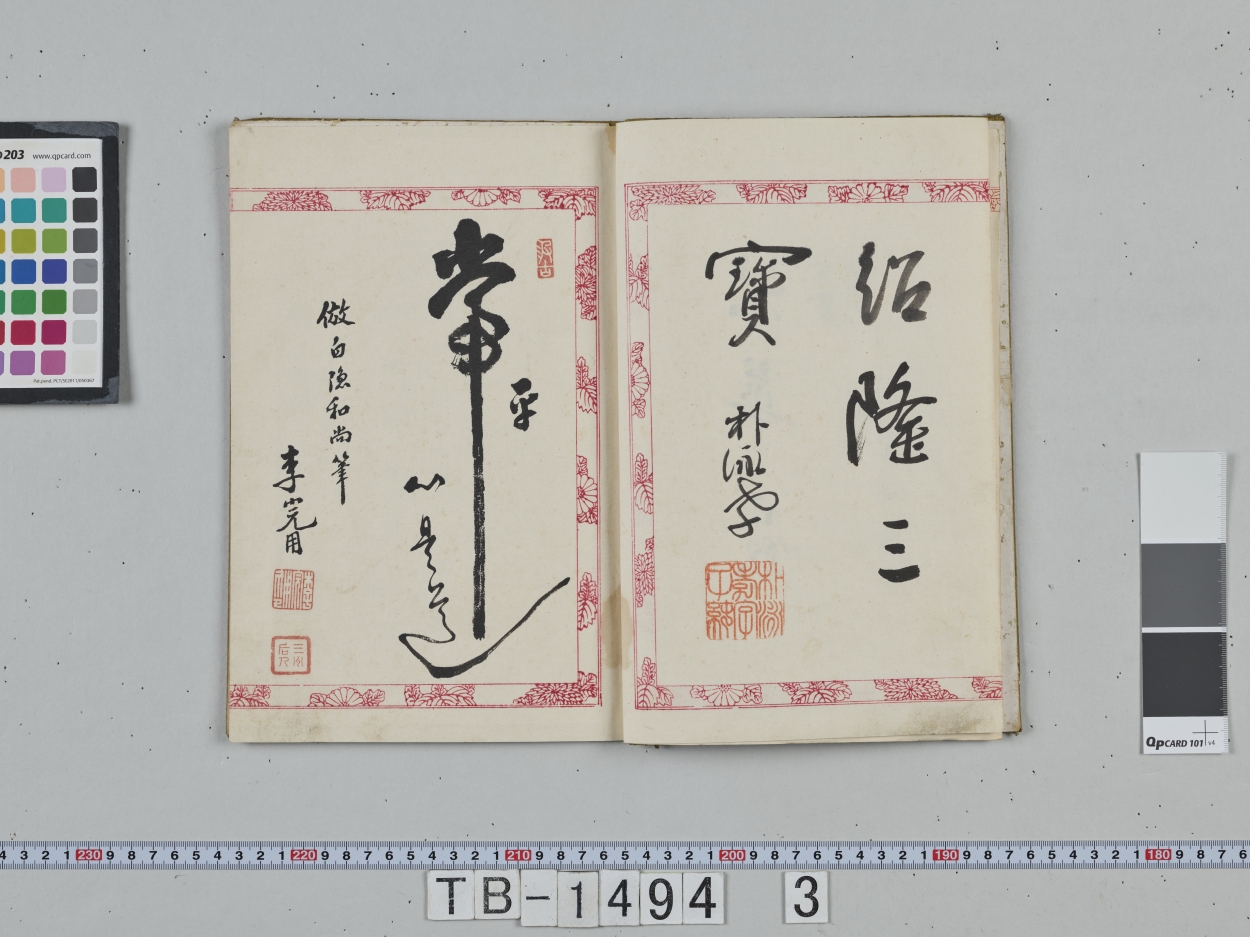 紹隆三
寶
朴泳孝
平常
心是道
倣白隱和尚筆
李完用
203 www.qpcard.com
QpCARD 101 v4
4 3 2 1 230 9 8 7 6 5 4 3 2 1 220 9 8 7 6 5 4 3 2 1 210 9 8 7 6 5 4 3 2 1 200 9 8 7 6 5 4 3 2 1 190 9 8 7 6 5 4 3 2 1 180 9 8 7 6
TB-1494 3